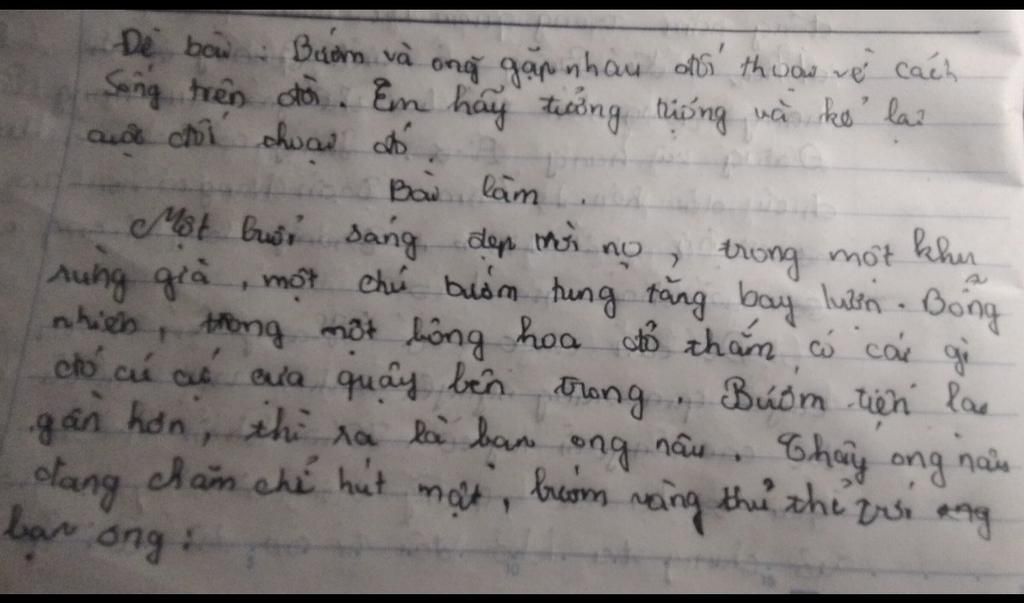 Đề bài : Bướm và ong gặp nhau đối thoại về cách
sống trên đời. Em hãy tưởng tượng và kể lại
cuộc đối thoại đó.
Bài làm.
Một buổi sáng đẹp trời nọ, trong một khu
rừng già, một chú bướm tung tăng bay lượn. Bỗng
nhiên, trong một bông hoa đỏ thắm có cái gì
đó cứ cứ cựa quậy bên trong. Bướm tiến lại
gần hơn, thì ra là bạn ong nâu. Thấy ong nâu
đang chăm chỉ hút mật, bướm vàng thủ thỉ với ong
bạn ong :